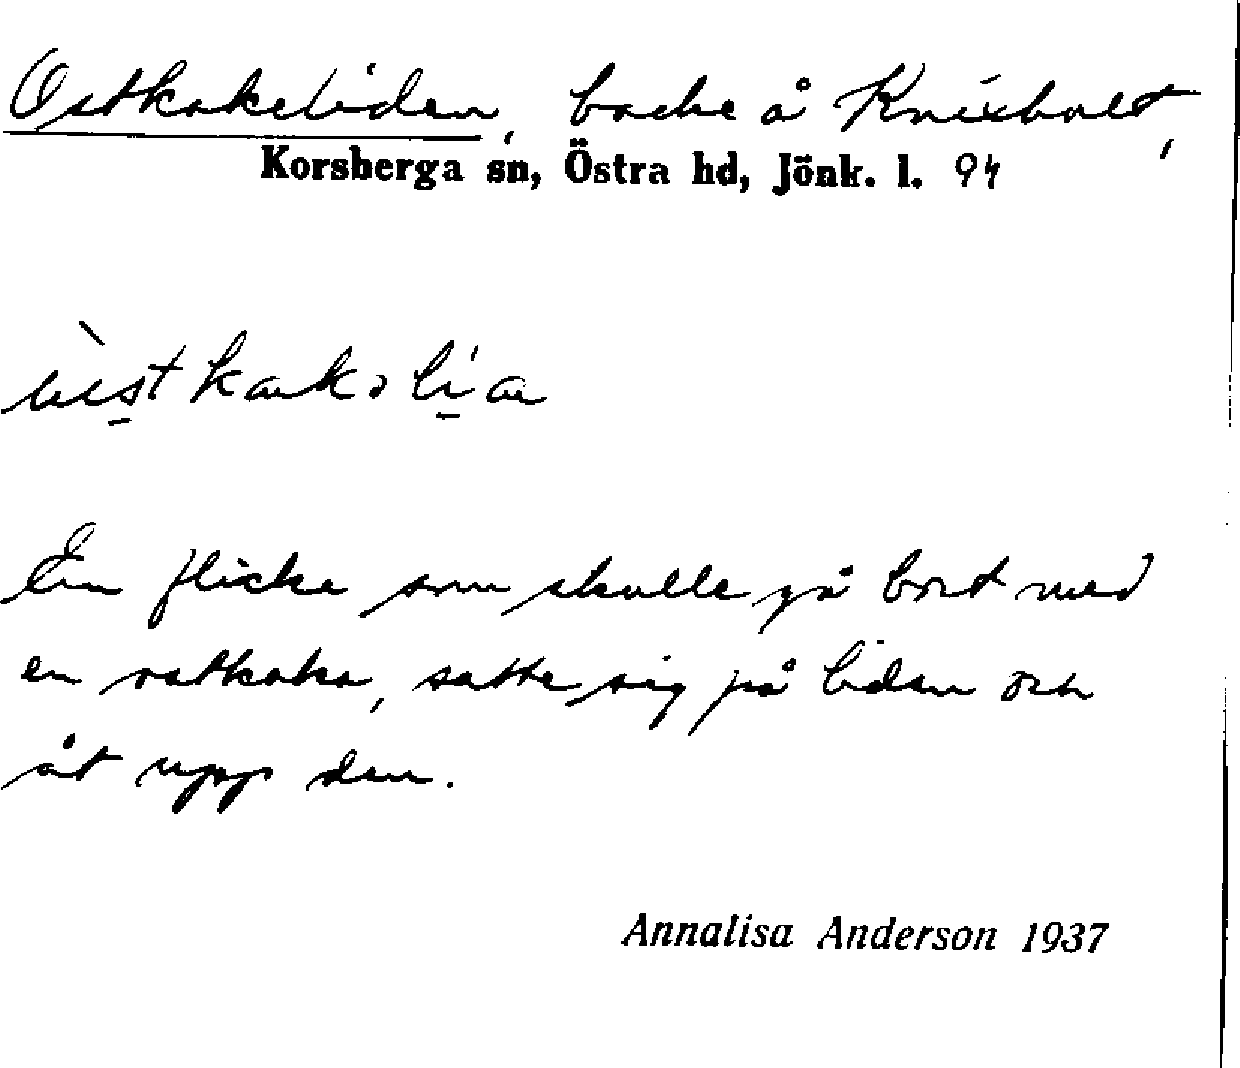 Ostkakeliden, backe å Knixhult,
Korsberga sn, Östra hd, Jönk. l. 94
En flicka som skulle gå bort med
en ostkaka, satte sig på liden och
åt upp den.
Annalisa Anderson 1937